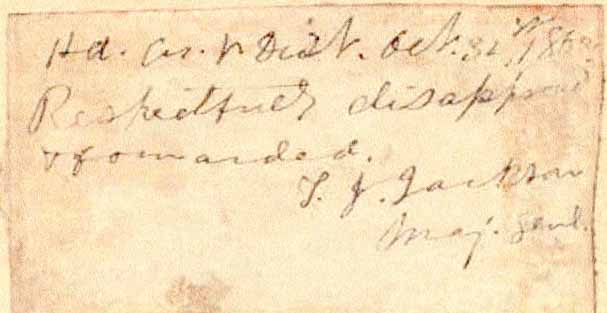 Hd. Qrs. V Dist. Oct. 31st,
Respectfully disapproved
& forwarded.
T. J. Jackson
Maj. Genl.